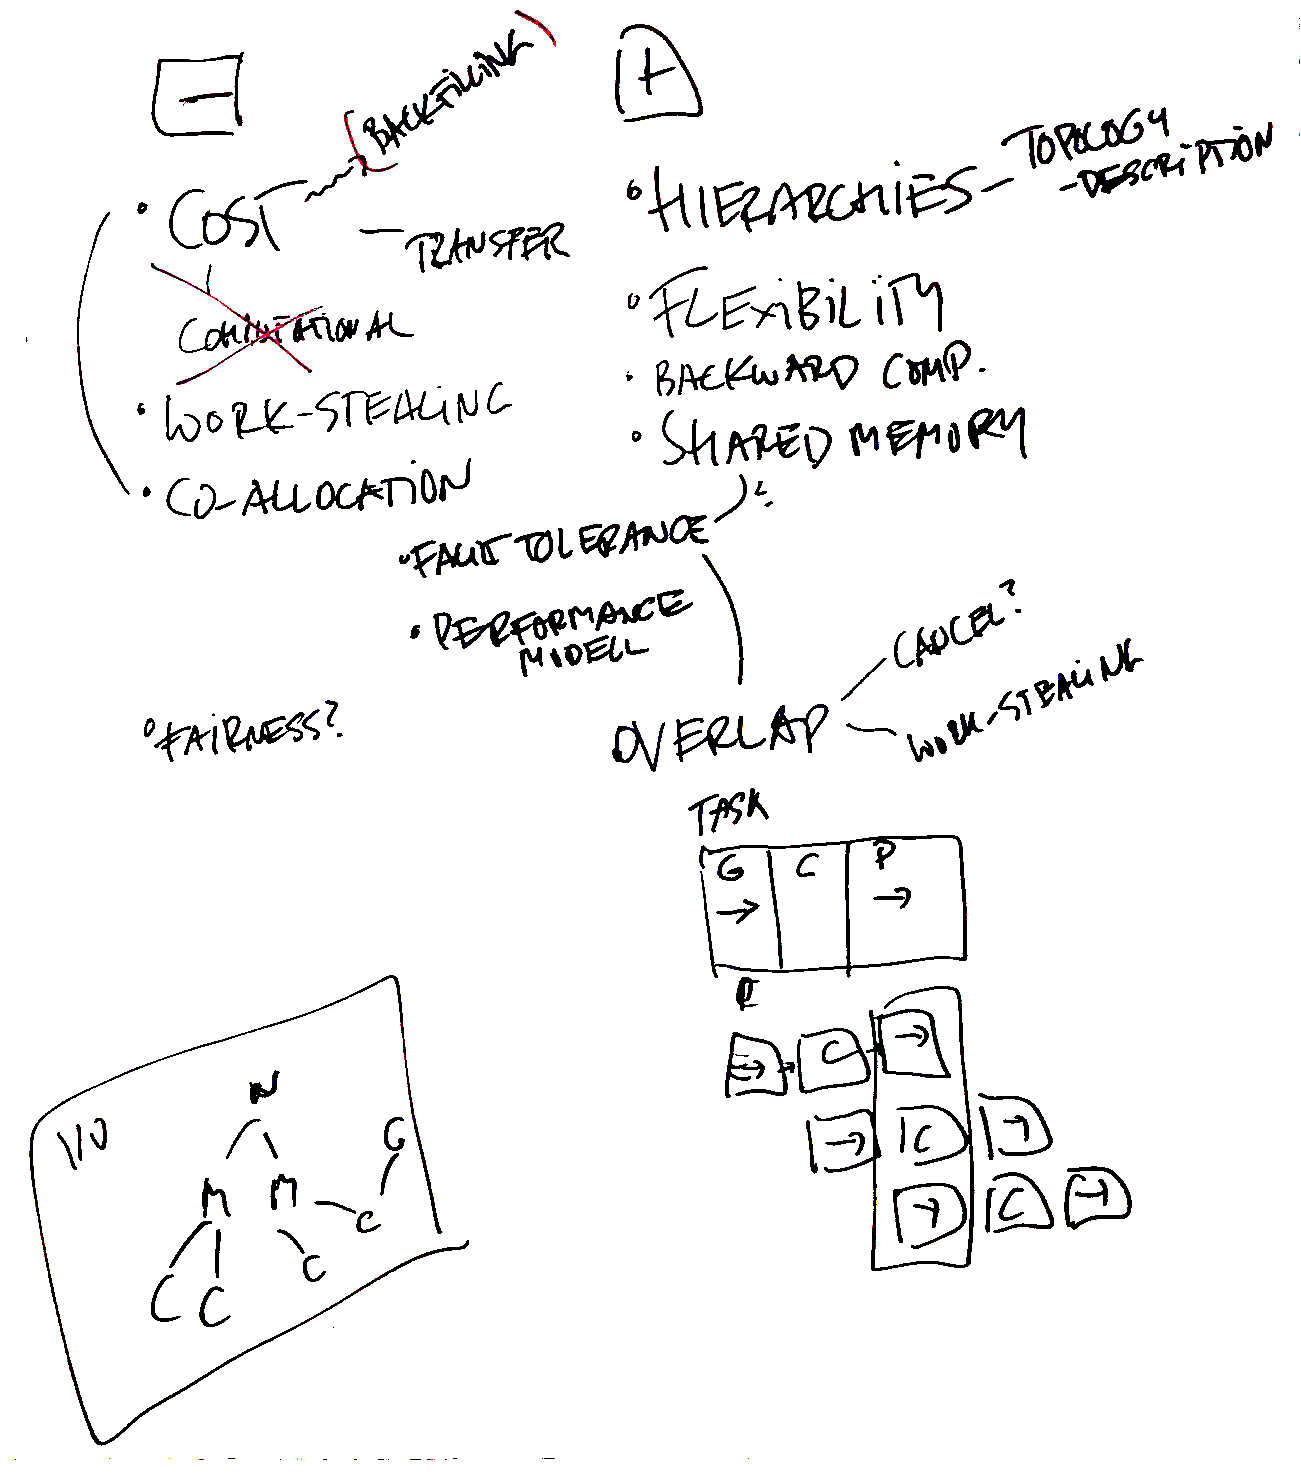 −
(BACKFILLING)
• COST
– TRANSFER
COMPUTATIONAL
• WORK-STEALING
• CO-ALLOCATION
+
• HIERARCHIES – TOPOLOGY
-DESCRIPTION
• FLEXIBILITY
• BACKWARD COMP.
• SHARED MEMORY
• FAULT TOLERANCE
• PERFORMANCE
MODELL
• FAIRNESS?
OVERLAP
CANCEL?
WORK-STEALING
TASK
G C P
→ →
→ C →
→ C →
→ C →
I/O
N
G
M M
C
C
C C